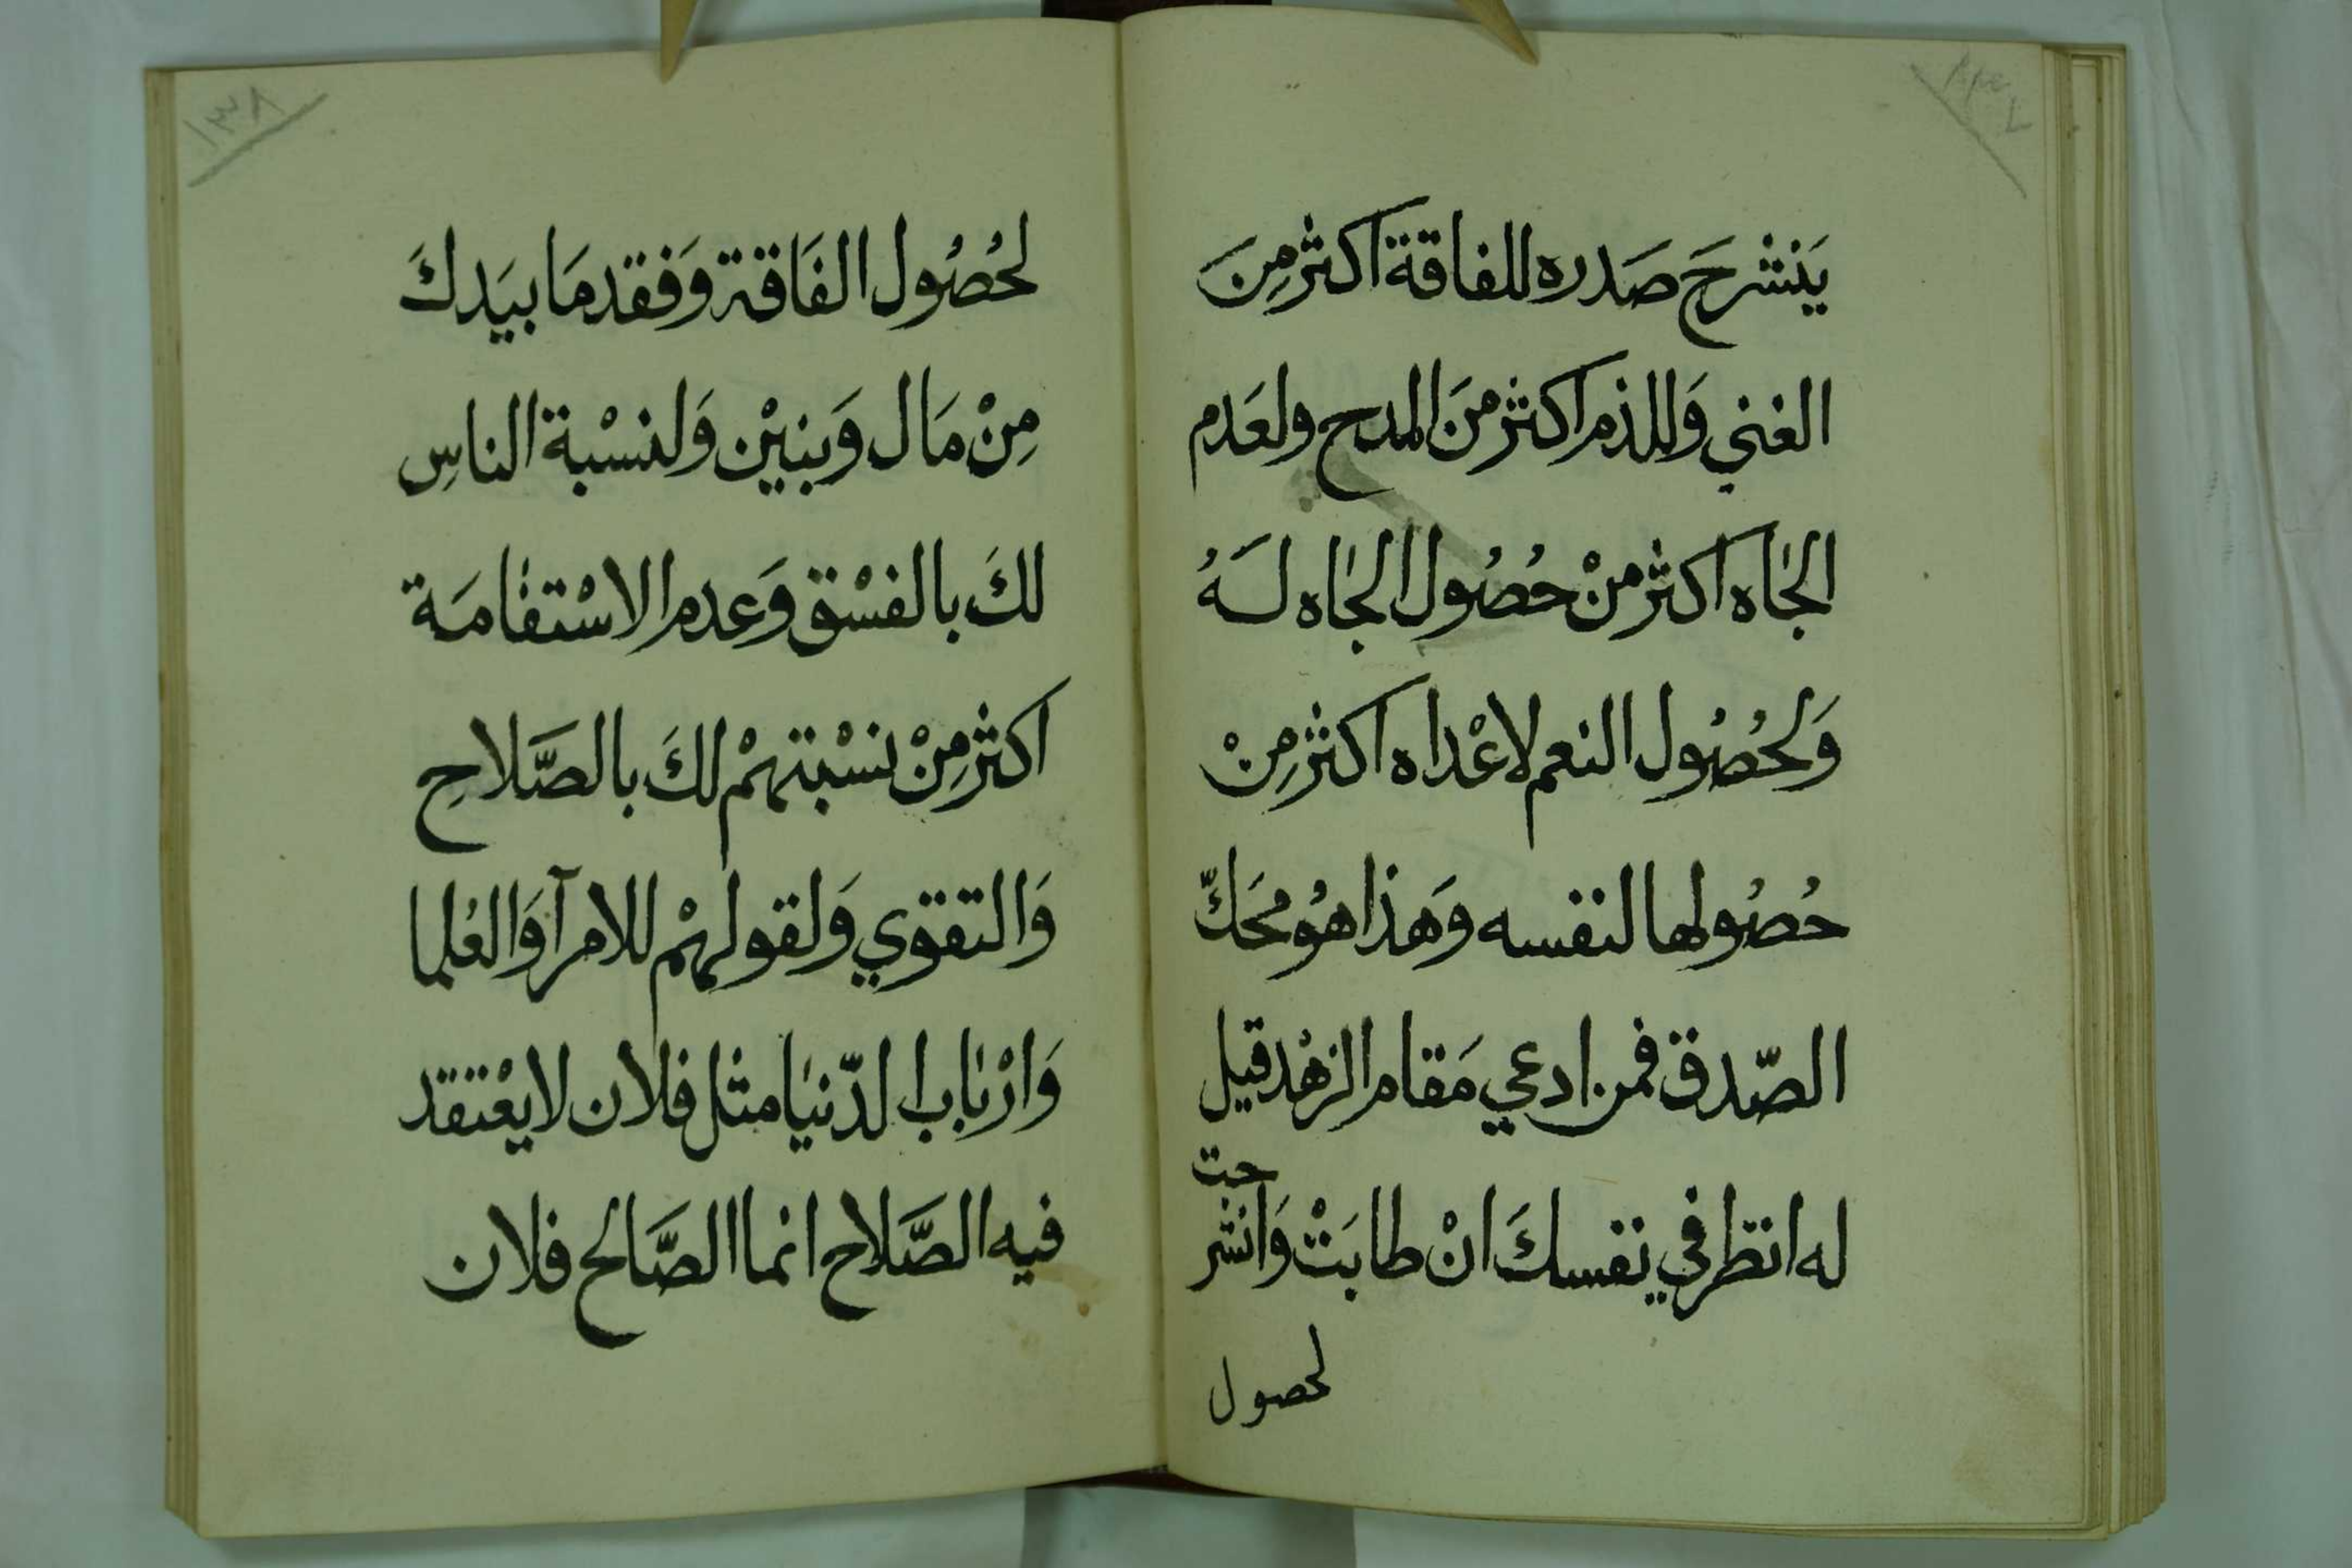 يَنْشرحَ صَدره للفاقة اكثر مِنَ
الغني وَللذم اكثر منَ المدح ولعَدم
الجاه اكثر منْ حُصُول الجاه لَهُ
وَلحُصُول النعم لاعْداه اكثر مِنْ
حُصُولها لنفسه وَهَذا هُو محَكّ
الصّدق فمن ادعي مَقام الزهْد قيل
له انظر في نفسكَ انْ طابَتْ وَانشرحت
لحصول
١٣٨
لحُصُول الفَاقة وَفقد مَا بيَدكَ
مِنْ مَال وَبنيْن وَلنسْبة الناسِ
لكَ بالفسْق وَعدم الاسْتقامَة
اكثر مِنْ نسْبتهمْ لكَ بالصَّلاحِ
وَالتقوي وَلقولهمْ للامرآ وَالعُلما
وَارْباب الدّنيا مثل فلان لا يعْتقد
فيه الصَّلاح انما الصَّالح فلان